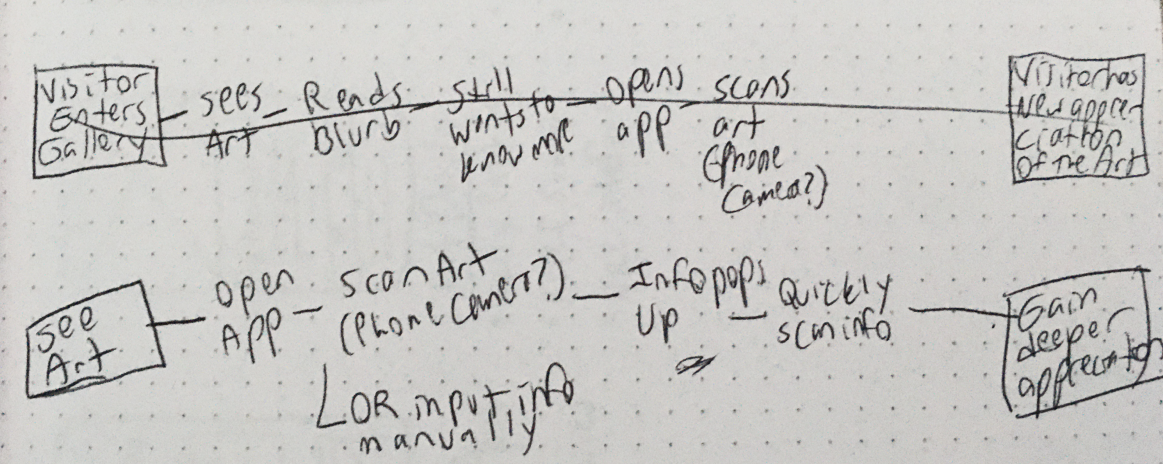 Visitor
Enters
Gallery
sees
Art
Reads
Blurb
still
wants to
know more
opens
app
scans
art
(phone
camera?)
Visitor has
New appre
ciation
of the Art
see
Art
open
App
scan Art
(Phone Camera?)
OR input info
manually
Info pops
Up
Quickly
scan info
Gain
deeper
appreciation